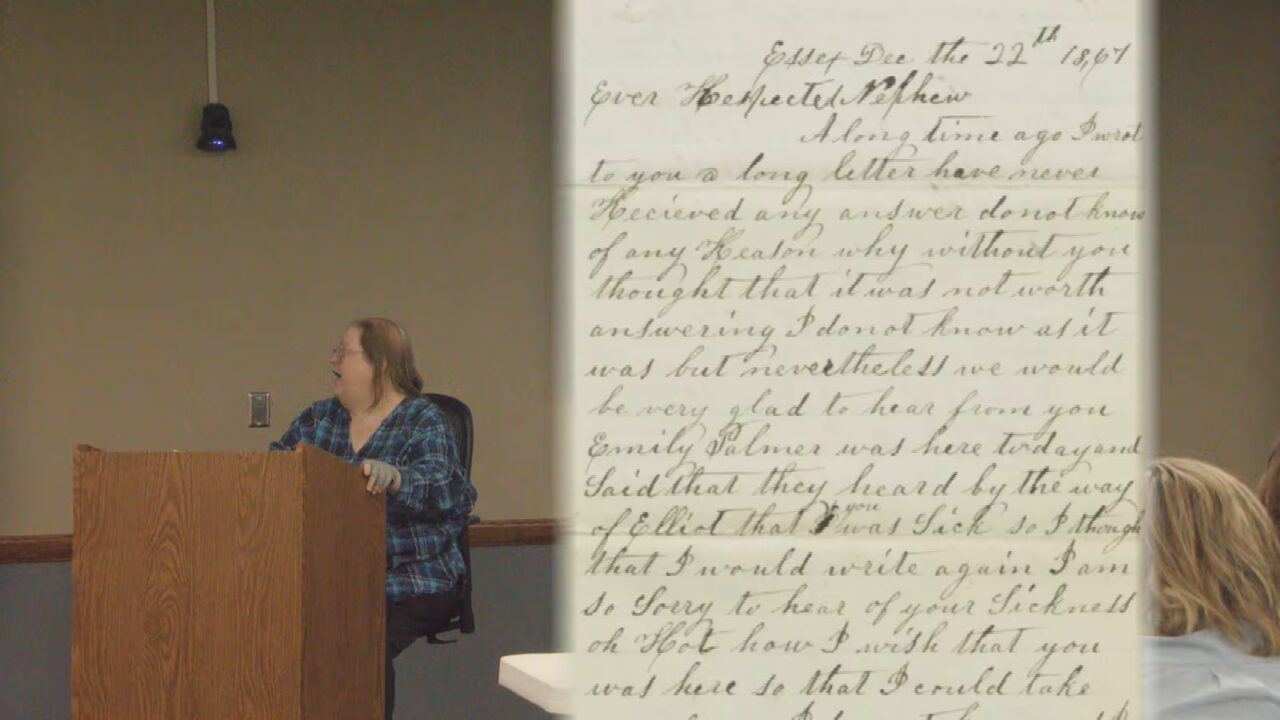 Essex Dec the 22th 18,67
Ever Respected Nephew
A long time ago I wrot
to you a long letter have never
Recieved any answer donot know
of any Reason why without you
thought that it was not worth
answering I donot know as it
was but nevertheless we would
be very glad to hear from you
Emily Palmer was here today and
Said that they heard by the way
of Elliot that you was Sick so I though
that I would write again I am
so Sorry to hear of your Sickness
oh how I wish that you
was here so that I could take